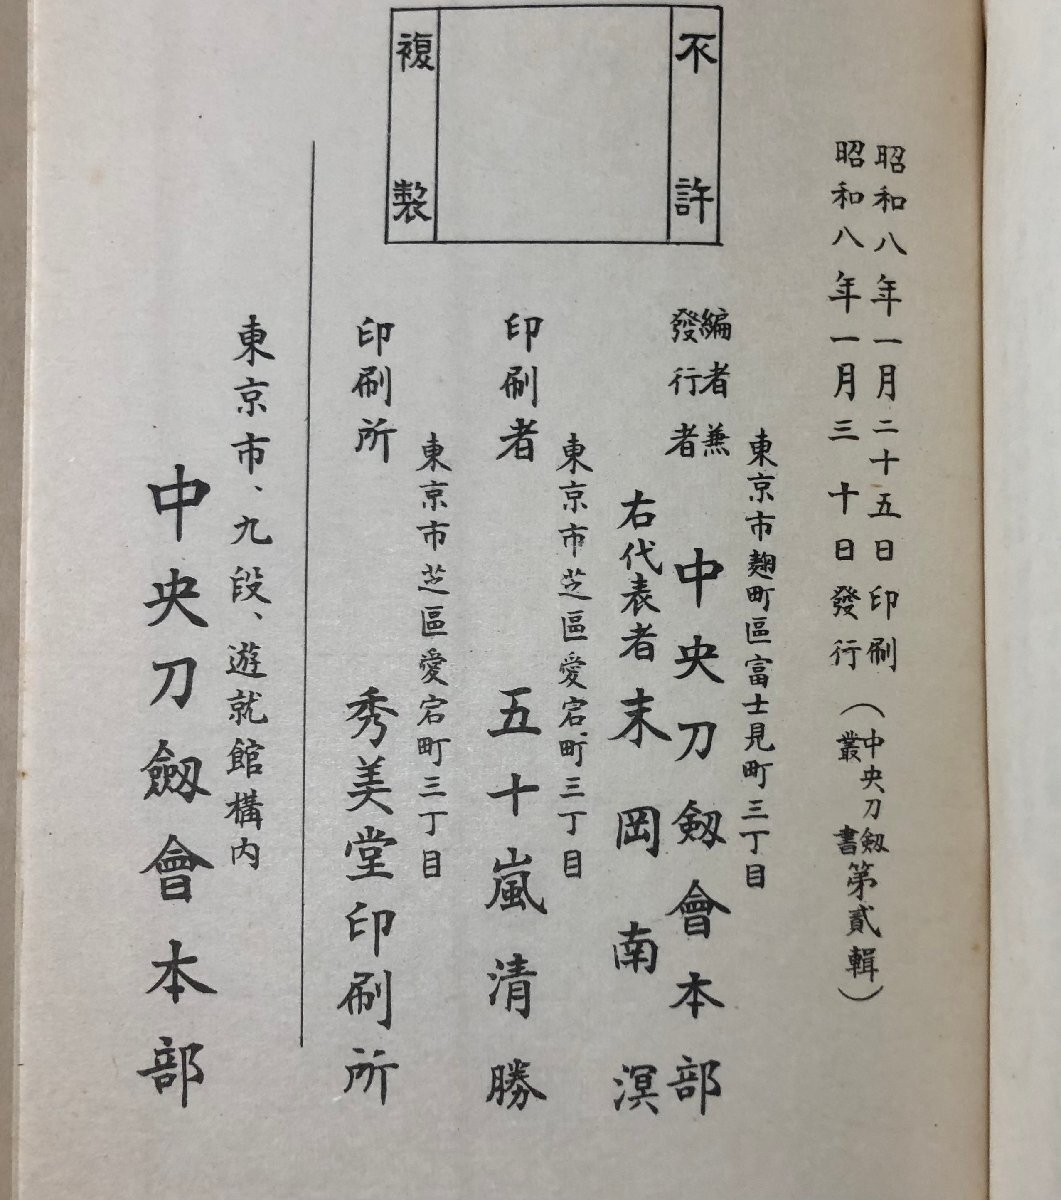 不許
複製
昭和八年一月二十五日印刷
昭和八年一月三十日發行(中央刀劔叢書第貳輯)
東京市麴町區富士見町三丁目
編者兼
發行者
中央刀劔會本部
右代表者末岡南溟
東京市芝區愛宕町三丁目
印刷者
五十嵐清勝
東京市芝區愛宕町三丁目
印刷所
秀美堂印刷所
東京市、九段、遊就館構内
中央刀劔會本部